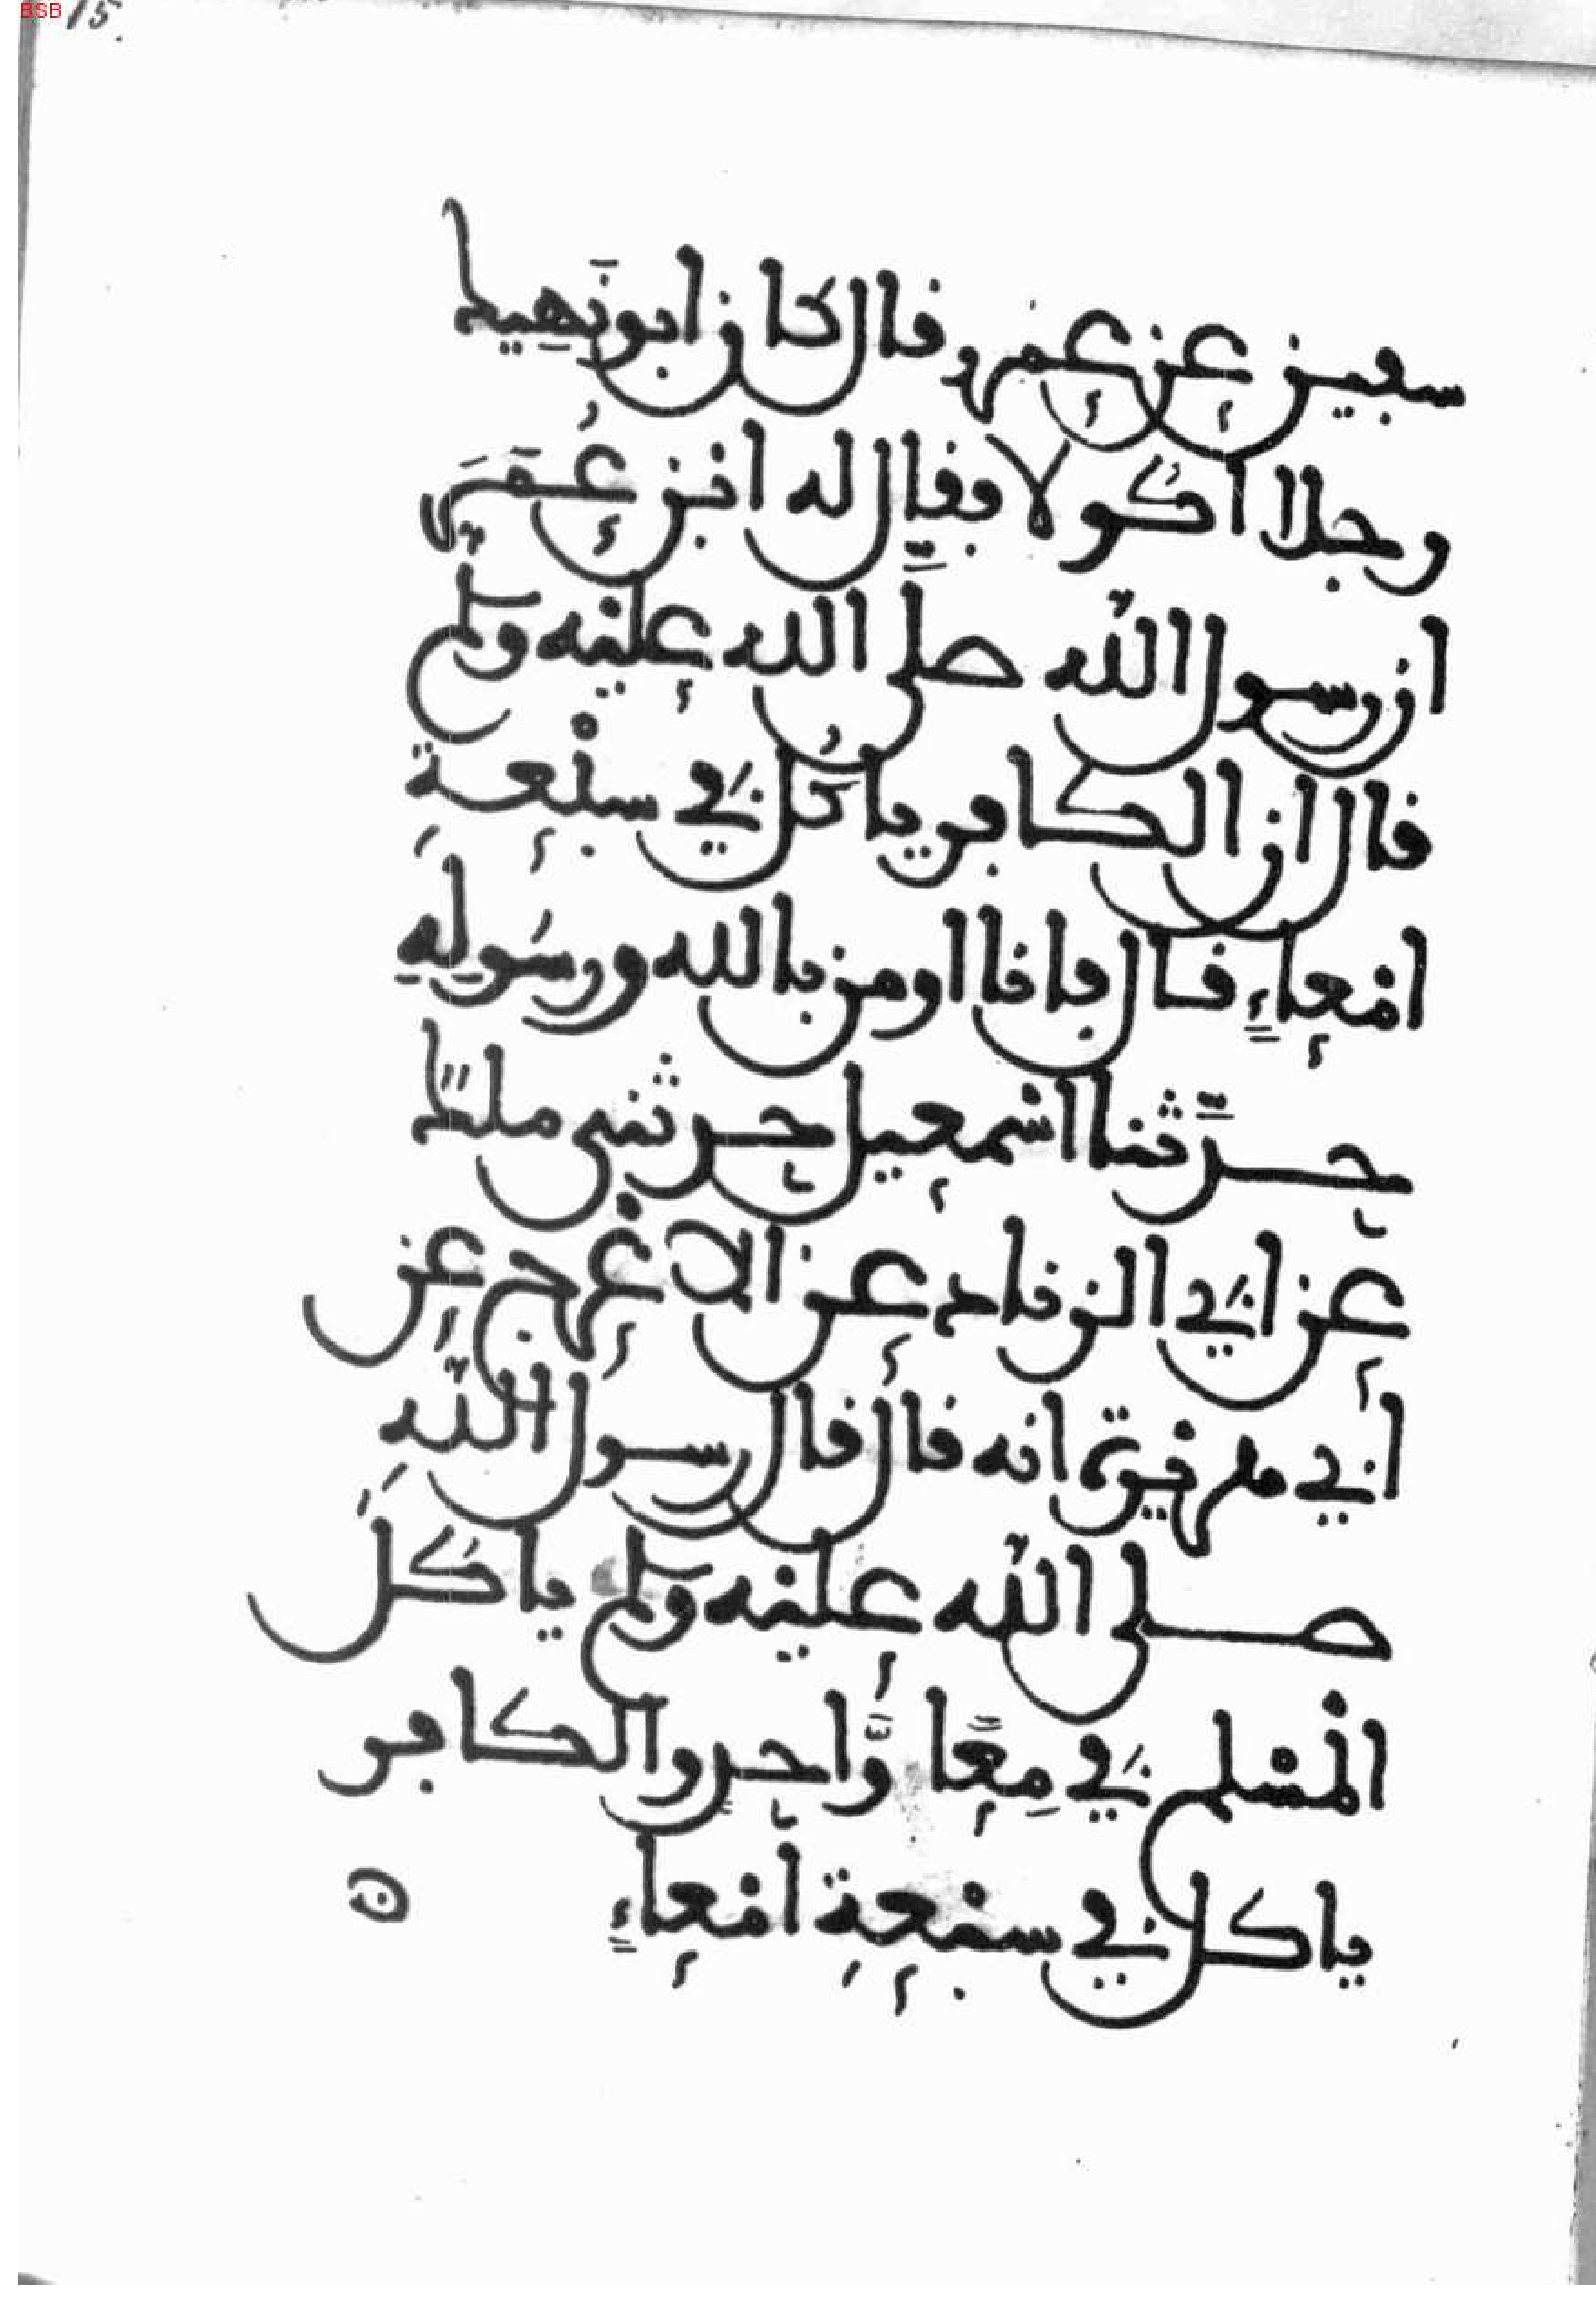 BSB 15.
سفين عن عمرو قال كان ابو نَهِيك
رجلا اكولا فقال له ابن عُمَرَ
ان رسول الله صلَّى الله عليْه وسلم
قال ان الكافر ياكُل في سبْعة
امْعاءٍ قال فانا اومن بالله ورسُولِهِ
حدَّثنا اسْمعيل حدثني ملكٌ
عن ابي الزناد عن الاعْرج عن
أبي هريرة انه قال قال رسول اللّه
صلى اللّه عليْه وسلم ياكلُ
الْمسْلم في مِعًا وَّاحدٍ والكافر
ياكل في سبْعةِ أمْعاءٍ